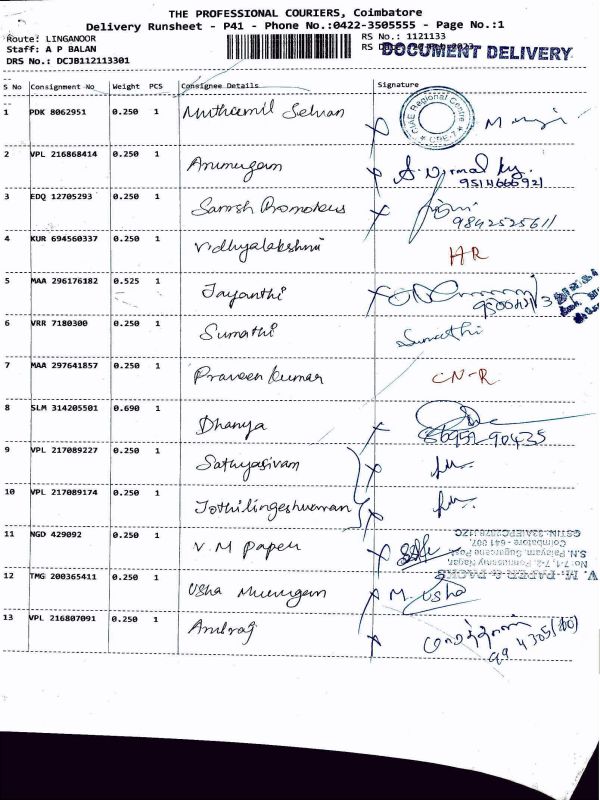 THE PROFESSIONAL COURIERS, Coimbatore
Delivery Runsheet - P41 - Phone No.:0422-3505555 - Page No.:1
Route: LINGANOOR RS No.: 1121133
Staff: A P BALAN RS DOCUMENT DELIVERY
DRS No.: DCJB112113301
S No Consignment No Weight PCS Consignee Details Signature
1 PDK 8062951 0.250 1 Muthamil Selvan CIAE Regional Centre CBE-7
2 VPL 216868414 0.250 1 Arumugam 9514666921
3 EDQ 12705293 0.250 1 Samsh Promoters 9842525611
4 KUR 694560337 0.250 1 Vidhyalakshmi HR
5 MAA 296176182 0.525 1 Jayanthi
6 VRR 7180300 0.250 1 Sumathi Sumathi
7 MAA 297641857 0.250 1 Praveen Kumar CN-R
8 SLM 314205501 0.690 1 Dhanya 86952-90425
9 VPL 217089227 0.250 1 Sathyasivam
10 VPL 217089174 0.250 1 Jothilingeshwaran
11 NGD 429092 0.250 1 V.M Paper
V. M. PAPER & PACKS
No: 7-1, 7-2, Ponnusamy Nagar,
S.N. Palayam, Sugarcane Post,
Coimbatore - 641 007.
12 TMG 200365411 0.250 1 Usha Murugan M. Usha
13 VPL 216807091 0.250 1 Arulraj